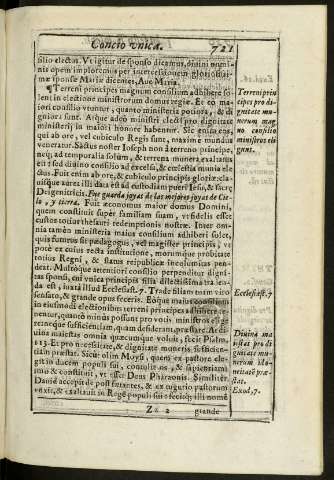 Concio vnica. 721
silio electus. Vt igitur de sponso dicamus, diuini numi-
nis opem imploremus per intercessionem gloriosissi-
mæ sponsæ Mariæ dicentes, Aue Maria.
¶ Terreni principes magnum consilium adhibere so-
lent in electione ministrorum domus regiæ. Et eo ma-
iori consilio vtuntur, quanto ministeria potiora, & di-
gniora sunt. Atque adeò ministri electi pro dignitate
ministerij in maiori honore habentur. Sic enim eos,
qui ab ore, vel cubiculo Regis sunt, maximè mundus
veneratur. Sanctus noster Ioseph non à terreno principe,
neq; ad temporalia solum, & terrena munera, exaltatus
est: sed diuino consilio ad excelsa, & cœlestia munia ele-
ctus. Fuit enim ab ore, & cubiculo principis gloriæ: cla-
uisque aurea illi data est ad custodiam pueri Iesu, & sacræ
Deigenitricis. Fue guarda joyas de las mejores joyas de Cie-
lo, y tierra. Fuit œconomus maior domus Domini,
quem constituit super familiam suam, vt fidelis esset
custos totius thesauri redemptionis nostræ. Inter om-
nia tamen ministeria maius consilium adhiberi solet,
quis futurus sit pædagogus, vel magister principis, vt
pote ex cuius recta institutione, morumque probitate
totius Regni, & status reipublicæ incolumitas pen-
deat. Multóque attentiori consilio perpenditur digni-
tas sponsi, cui vnica principis filia dilectissima traden-
da est, iuxtà illud Ecclesiast. 7. Trade filiam tuam viro
sensato, & grande opus feceris. Eóque maius consilium
in eiusmodi electionibus terreni principes adhibere te-
nentur, quantò minùs possunt pro votis ministros
reneque sufficiendam, quam desiderant, præstare. At di-
uina maiestas omnia quæcumque voluit, fecit Psalm.
113. Et pro necessitate, & dignitate muneris sufficien-
tiam præstat. Sicut olim Moysi, quem ex pastore ele-
git in ducem populi sui, consulens, & sapientiam
& constituit, vt esset Deus Pharaonis. Similiter
Dauid accepit de post fœtantes, & ex tugurio pastorum
vnxit, & exaltauit in Regẽ populi sui: fecitq; illi nomẽ
Zz 2 grande
Terreni prin
cipes pro di-
gnitate mu-
nerum mag
no consilio
ministros eli
gunt.
Ecclesiast. 7
Diuina ma
iestas pro di
gnitate mu-
nerum ido-
neitatẽ præ-
stat.
Exod, 7.